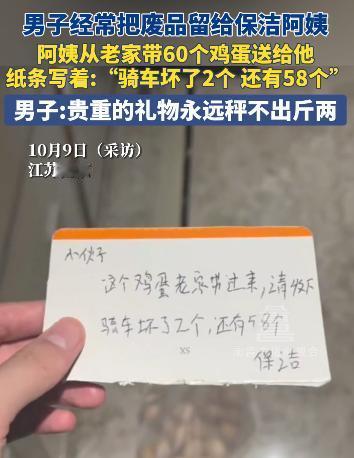 男子经常把废品留给保洁阿姨
阿姨从老家带60个鸡蛋送给他
纸条写着:“骑车坏了2个 还有58个”
男子:贵重的礼物永远秤不出斤两
10月9日（采访）
江苏
小伙子
这个鸡蛋老家带过来,请收下
骑车坏了2个,还有58个
XS
保洁